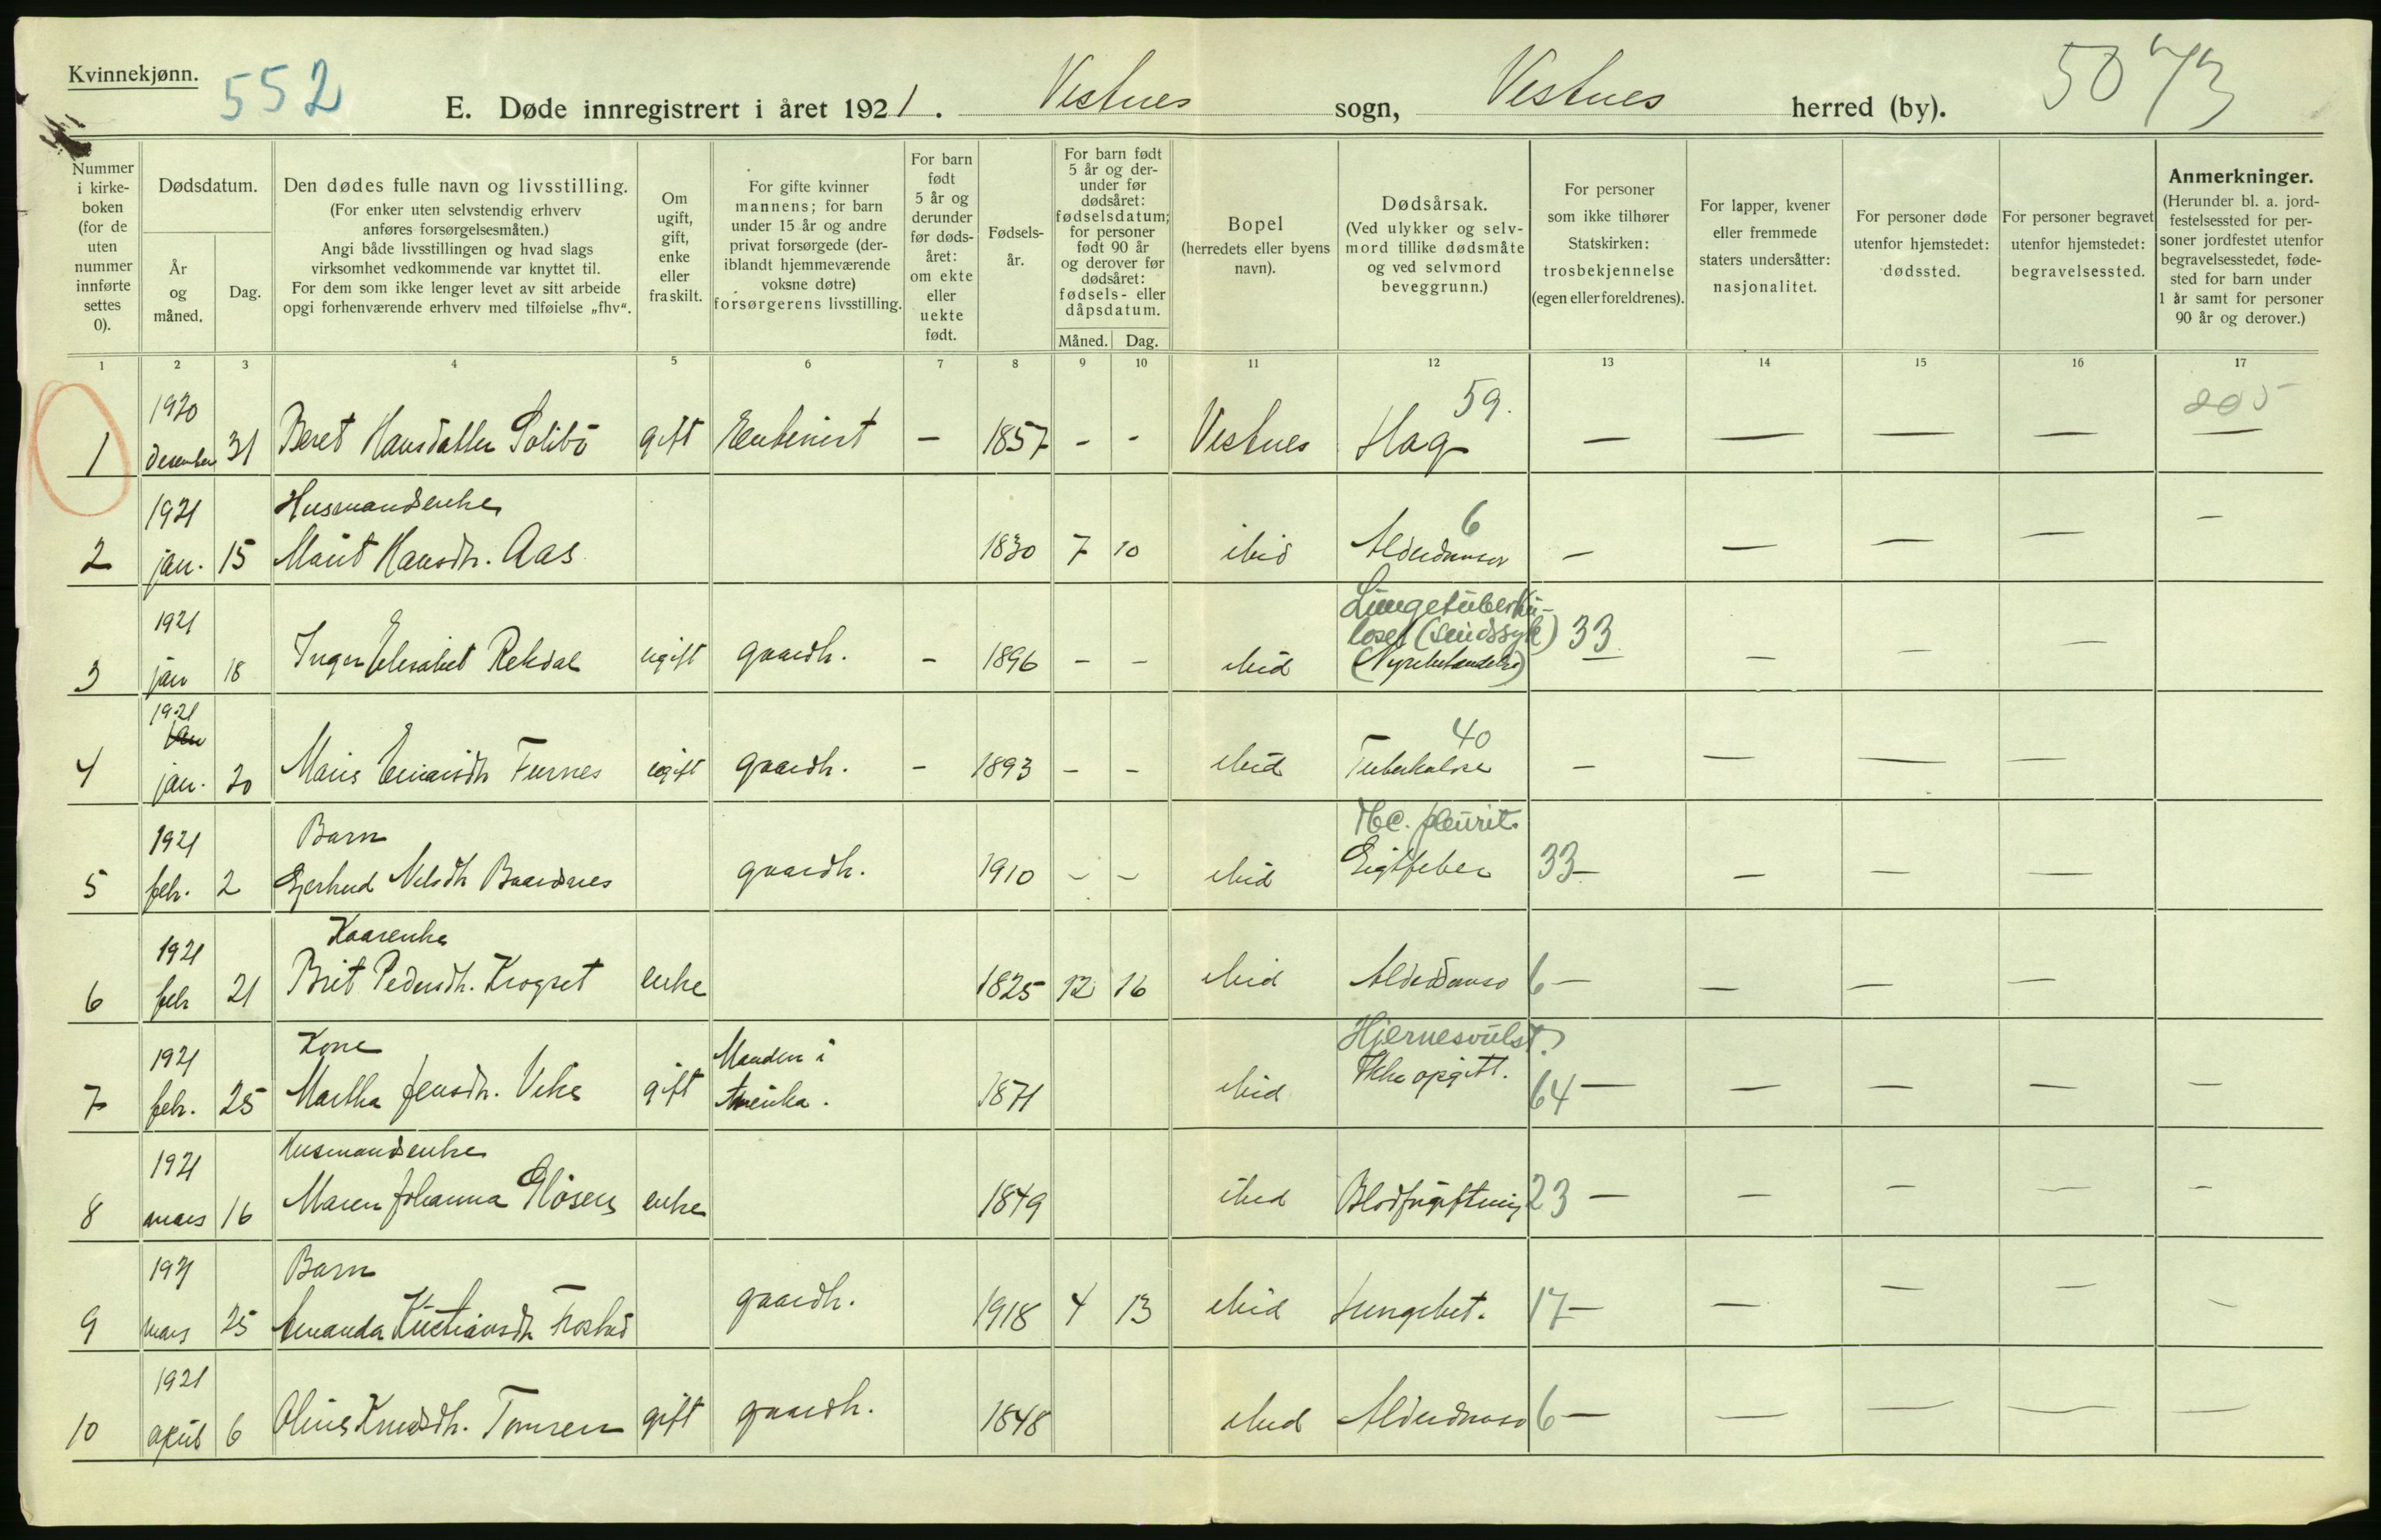 Kvinnekjønn.
552
E. Døde innregistrert i året 1921. Vestnes sogn, Vestnes herred (by).
5073
Nummer i kirke-boken (for de uten nummer innførte settes 0).
Dødsdatum.
År og måned.
Dag.
Den dødes fulle navn og livsstilling.
(For enker uten selvstendig erhverv anføres forsørgelsesmåten.)
Angi både livsstillingen og hvad slags virksomhet vedkommende var knyttet til.
For dem som ikke lenger levet av sitt arbeide opgi forhenværende erhverv med tilføielse „fhv“.
Om ugift, gift, enke eller fraskilt.
For gifte kvinner mannens; for barn under 15 år og andre privat forsørgede (deriblandt hjemmeværende voksne døtre) forsørgerens livsstilling.
For barn født 5 år og derunder før dødsåret: om ekte eller uekte født.
Fødsels-år.
For barn født 5 år og der-under før dødsåret: fødselsdatum; for personer født 90 år og derover før dødsåret: fødsels- eller dåpsdatum.
Måned. Dag.
Bopel
(herredets eller byens navn).
Dødsårsak.
(Ved ulykker og selv-mord tillike dødsmåte og ved selvmord beveggrunn.)
For personer som ikke tilhører Statskirken: trosbekjennelse (egen eller foreldrenes).
For lapper, kvener eller fremmede staters undersåtter: nasjonalitet.
For personer døde utenfor hjemstedet: dødssted.
For personer begravet utenfor hjemstedet: begravelsessted.
Anmerkninger.
(Herunder bl. a. jord-festelsessted for per-soner jordfestet utenfor begravelsesstedet, føde-sted for barn under 1 år samt for personer 90 år og derover.)
1 2 3 4 5 6 7 8 9 10 11 12 13 14 15 16 17
1920 59.
1 desember 31 Beret Hansdatter Solibö gift – 1857 - - Vestnes Hag — — — — —
1921 Husmandsenke 6
2 jan. 15 Marit Hansdtr. Aas 1830 7 10 ibid Alderdomsv – — — — –
1921 Lungetuberku-
losel (sindssyk) 33
3 jan 18 Inger Elisabet Rekdal ugift gaardbr. – 1896 – – ibid – — — —
1921
jan 40
4 jan. 20 Maris Furnes ugift gaardbr. – 1893 – – ibid Tuberkulose – — — —
1921 Barn Tbc. pleurit.
5 febr. 2 Gjertrud Nilsdtr Baardsnes gaardbr. 1910 – – ibid Gigtfeber 33– — — —
1921 Kaarenke
6 febr 21 Brit Pedersdtr. Krogset enke 1825 12 16 ibid Alderdomsv 6– — — —
1921 Kone Manden i Hjernesvulst?
7 febr. 25 Martha Jensdtr. Vike gift Amerika. 1871 ibid Ikke opgitt. 64— — — — —
1921 Husmandsenke
8 mars 16 Maren Johanna enke 1849 ibid Blodforgiftning 23 — — — — –
1921 Barn
9 mars 25 Amanda Kristiansdtr gaardbr. 1918 4 13 ibid Lungebet. 17– — — — –
1921
10 april 6 Knudsdtr. Tomren gift gaardbr. 1848 ibid Alderdomsv 6— — — — —